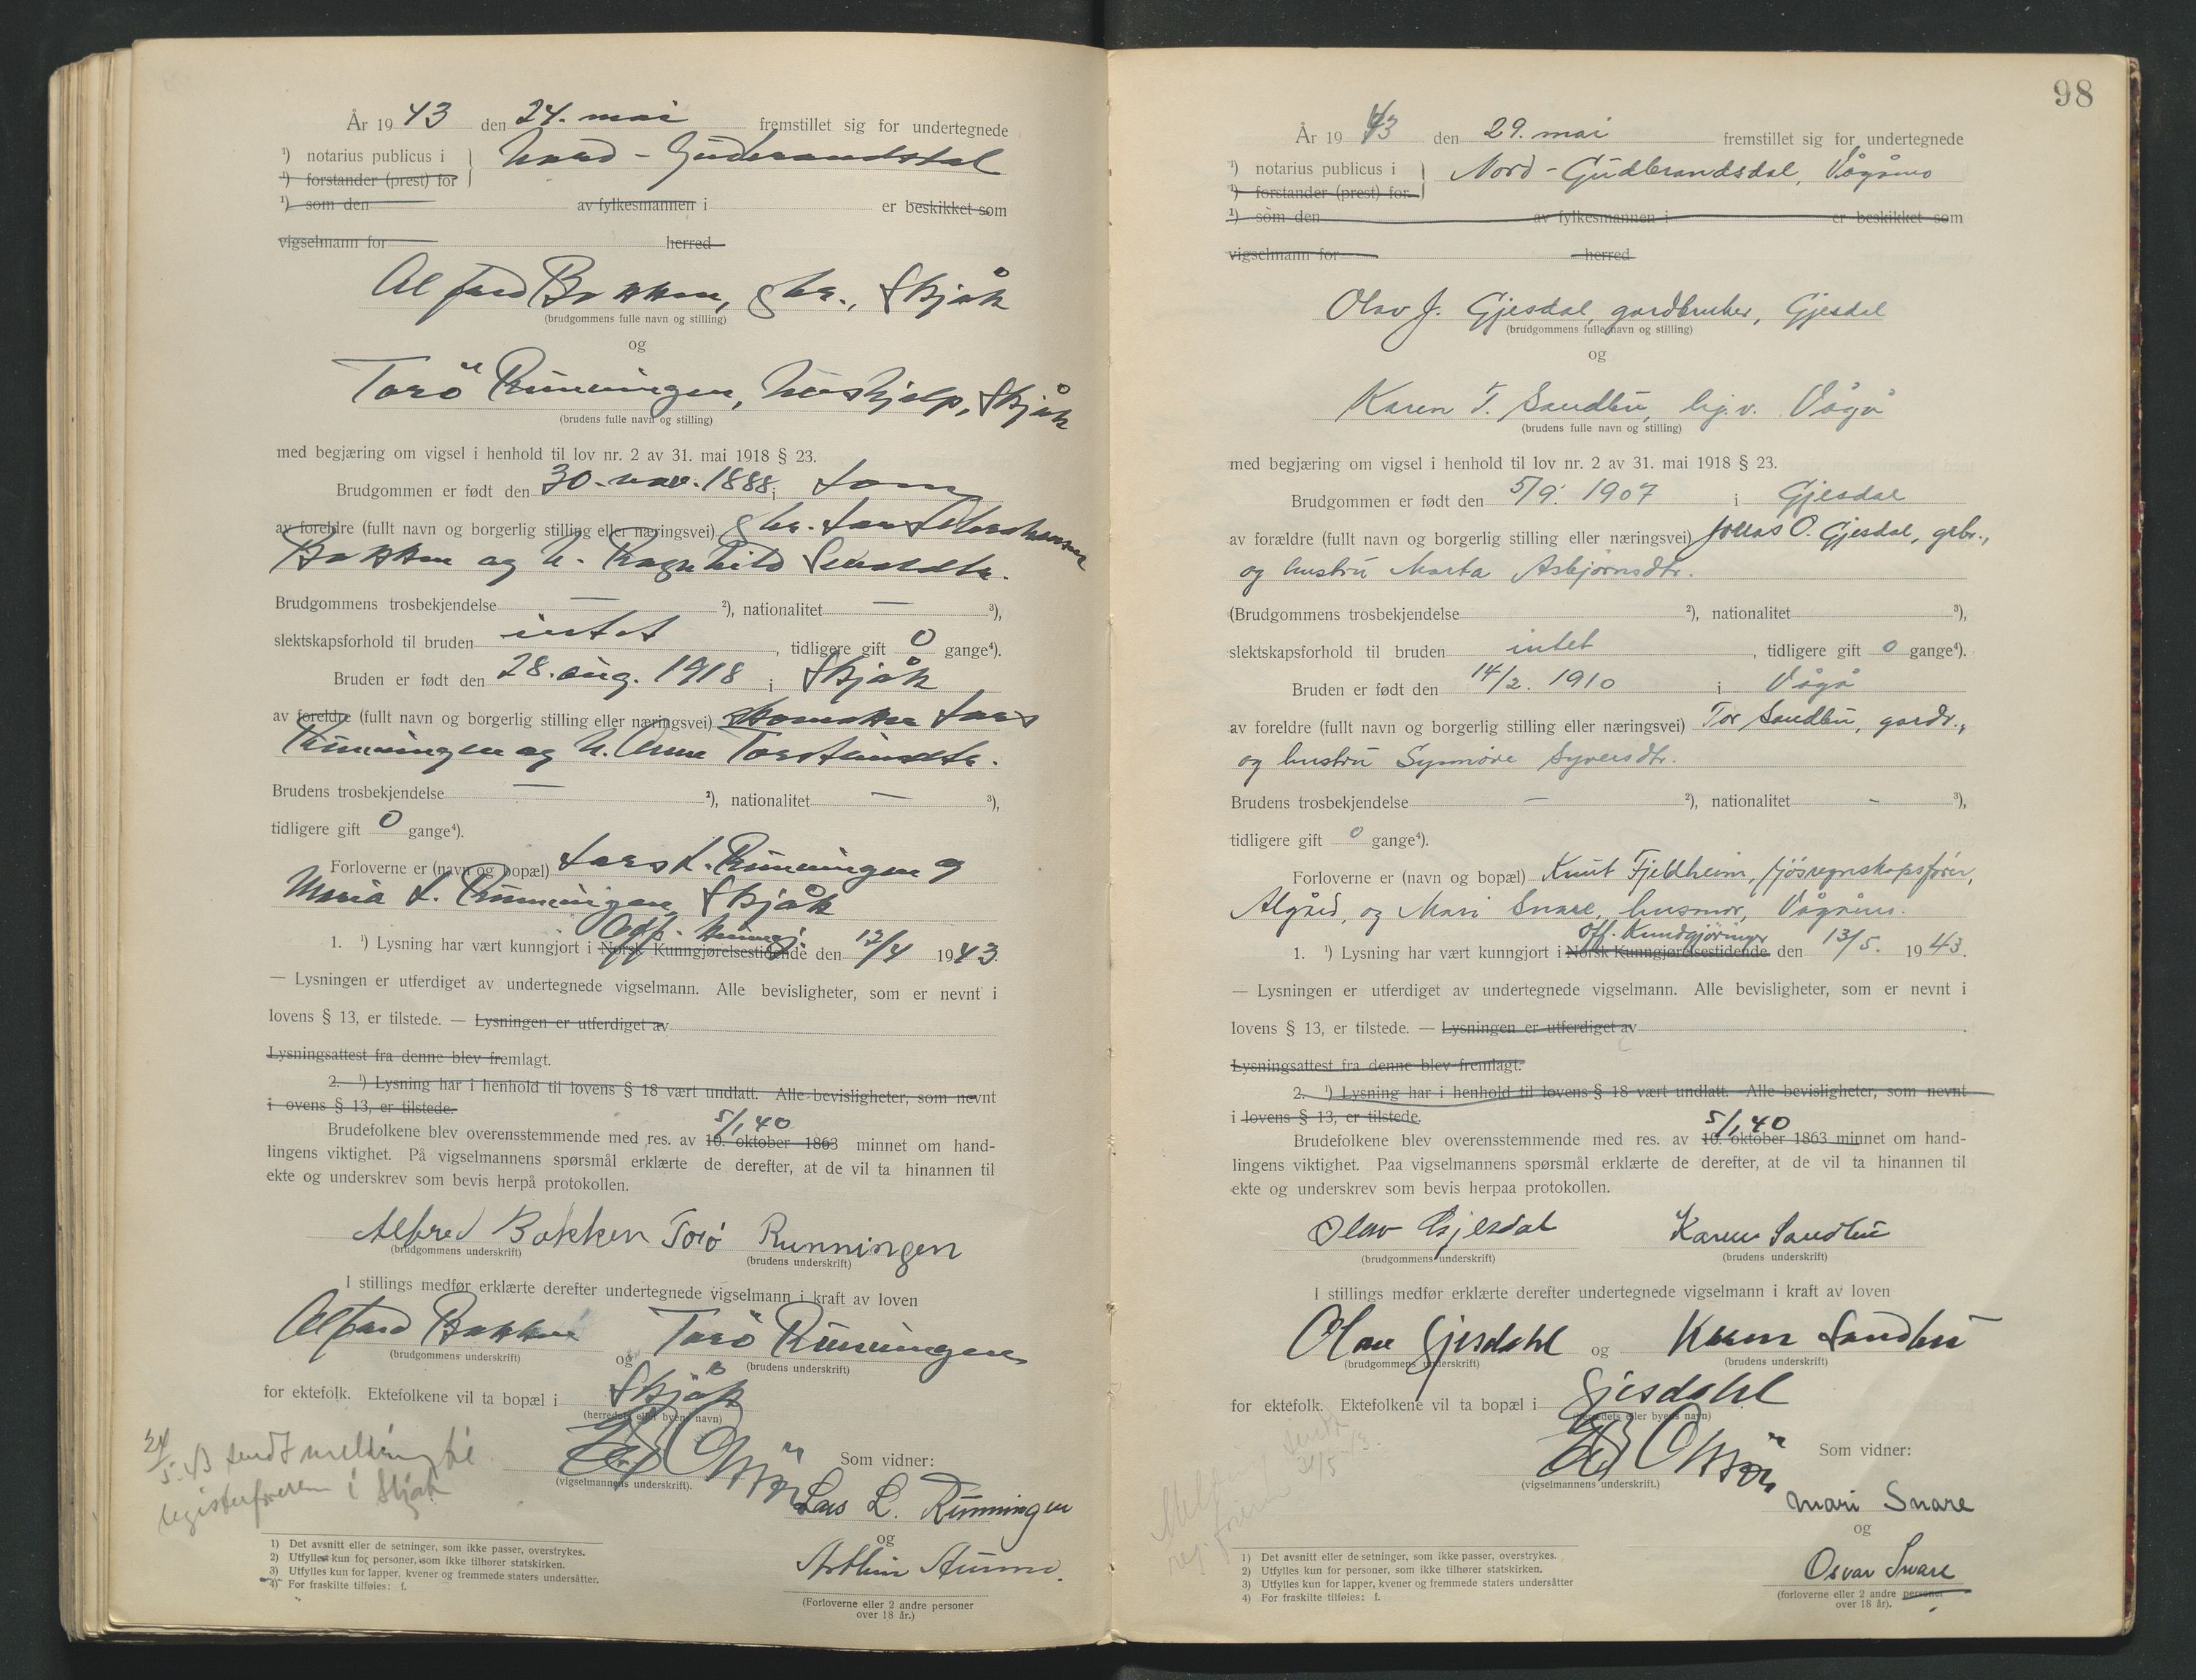 År 1943 den 24. mai fremstillet sig for undertegnede
¹) notarius publicus i Nord-Gudbrandsdal
¹) forstander (prest) for
¹) som den av fylkesmannen i er beskikket som
vigselmann for herred
Alfred Bakken, gbr., Skjåk
(brudgommens fulle navn og stilling)
og
Torö Runningen, hushjelp, Skjåk
(brudens fulle navn og stilling)
med begjæring om vigsel i henhold til lov nr. 2 av 31. mai 1918 § 23.
Brudgommen er født den 30. nov. 1888 i Lom
av foreldre (fullt navn og borgerlig stilling eller næringsvei) gbr.
Bakken og h. Ragnhild
Brudgommens trosbekjendelse — ²), nationalitet — ³),
slektskapsforhold til bruden intet, tidligere gift 0 gange⁴).
Bruden er født den 28. aug. 1918 i Skjåk
av foreldre (fullt navn og borgerlig stilling eller næringsvei) skomaker Lars
Runningen og h. Anne Torsteinsdtr.
Brudens trosbekjendelse — ²), nationalitet — ³),
tidligere gift 0 gange⁴).
Forloverne er (navn og bopæl) Lars L. Runningen og
Maria L. Runningen, Skjåk
Off. kunngj.
1. ¹) Lysning har vært kunngjort i Norsk Kunngjørelsestidende den 12/4 1943.
— Lysningen er utferdiget av undertegnede vigselmann. Alle bevisligheter, som er nevnt i
lovens § 13, er tilstede. — Lysningen er utferdiget av
Lysningsattest fra denne blev fremlagt.
2. ¹) Lysning har i henhold til lovens § 18 vært undlatt. Alle bevisligheter, som nevnt
i ovens § 13, er tilstede.
5/1 40
Brudefolkene blev overensstemmende med res. av 10. oktober 1863 minnet om hand-
lingens viktighet. På vigselmannens spørsmål erklærte de derefter, at de vil ta hinannen til
ekte og underskrev som bevis herpå protokollen.
Alfred Bakken Torö Runningen
(brudgommens underskrift) (brudens underskrift)
I stillings medfør erklærte derefter undertegnede vigselmann i kraft av loven
Alfred Bakken og Torö Runningen
(brudgommens underskrift) (brudens underskrift)
for ektefolk. Ektefolkene vil ta bopæl i Skjåk
(herredets eller byens navn)
24/5.43 sendt melding til
registerføreren i Skjåk
(vigselmannens underskrift).
Som vidner:
Lars L. Runningen
og
(Forloverne eller 2 andre personer
over 18 år.)
1) Det avsnitt eller de setninger, som ikke passer, overstrykes.
2) Utfylles kun for personer, som ikke tilhører statskirken.
3) Utfylles kun for lapper, kvener og fremmede staters undersåtter.
4) For fraskilte tilføies: f.
98
År 1943 den 29. mai fremstillet sig for undertegnede
¹) notarius publicus i Nord-Gudbrandsdal, Vågåmo
¹) forstander (prest) for
¹) som den av fylkesmannen i er beskikket som
vigselmann for herred
Olav J. Gjesdal, gardbruker, Gjesdal
(brudgommens fulle navn og stilling)
og
Karen T. Sandbu, hj.v. Vågå
(brudens fulle navn og stilling)
med begjæring om vigsel i henhold til lov nr. 2 av 31. mai 1918 § 23.
Brudgommen er født den 5/9. 1907 i Gjesdal
av forældre (fullt navn og borgerlig stilling eller næringsvei) Jonas O. Gjesdal, gbr.,
og hustru Marta Asbjørnsdtr.
(Brudgommens trosbekjendelse ²), nationalitet ³),
slektskapsforhold til bruden intet, tidligere gift 0 gange⁴).
Bruden er født den 14/2. 1910 i Vågå
av foreldre (fullt navn og borgerlig stilling eller næringsvei) Tor Sandbu, gardbr.,
og hustru Synnøve Syversdtr.
Brudens trosbekjendelse — ²), nationalitet - ³),
tidligere gift 0 gange⁴).
Forloverne er (navn og bopæl) Knut Fjeldheim, fjøsregnskapsfører,
Algård, og Mari Snare, husmor, Vågåmo.
Off. Kundgjøringer
1. ¹) Lysning har vært kunngjort i Norsk Kunngjørelsestidende den 13/5. 1943.
— Lysningen er utferdiget av undertegnede vigselmann. Alle bevisligheter, som er nevnt i
lovens § 13, er tilstede. — Lysningen er utferdiget av
Lysningsattest fra denne blev fremlagt.
2. ¹) Lysning har i henhold til lovens § 18 vært undlatt. Alle bevisligheter, som nevnt
i lovens § 13, er tilstede.
5/1 40
Brudefolkene blev overensstemmende med res. av 10. oktober 1863 minnet om hand-
lingens viktighet. Paa vigselmannens spørsmål erklærte de derefter, at de vil ta hinannen til
ekte og underskrev som bevis herpaa protokollen.
Olav Gjesdal Karen Sandbu
(brudgommens underskrift) (brudens underskrift)
I stillings medfør erklærte derefter undertegnede vigselmann i kraft av loven
Olav Gjesdahl og Karen Sandbu
(brudgommens underskrift) (brudens underskrift)
for ektefolk. Ektefolkene vil ta bopæl i Gjesdahl
(herredets eller byens navn)
Melding sendt
reg.fører 31/5
(vigselmannens underskrift.)
Som vidner:
Mari Snare
og
Osvar Snare
(forloverne eller 2 andre personer
over 18 år).
1) Det avsnitt eller de setninger, som ikke passer, overstrykes.
2) Utfylles kun for personer, som ikke tilhører statskirken.
3) Utfylles kun for lapper, kvener og fremmede staters undersåtter
4) For fraskilte tilføies: f.